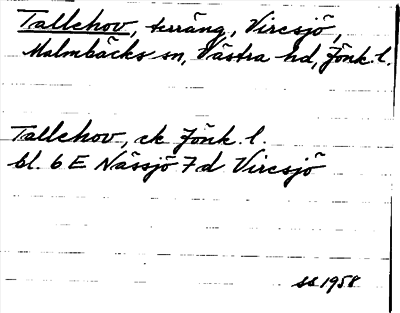 Tallehov, terräng, Vircsjö,
Malmbäcks sn, Västra hd, Jönk. l.
Tallehov, ek Jönk. l.
bl. 6 E Nässjö 7 d Vircsjö
ss 1958